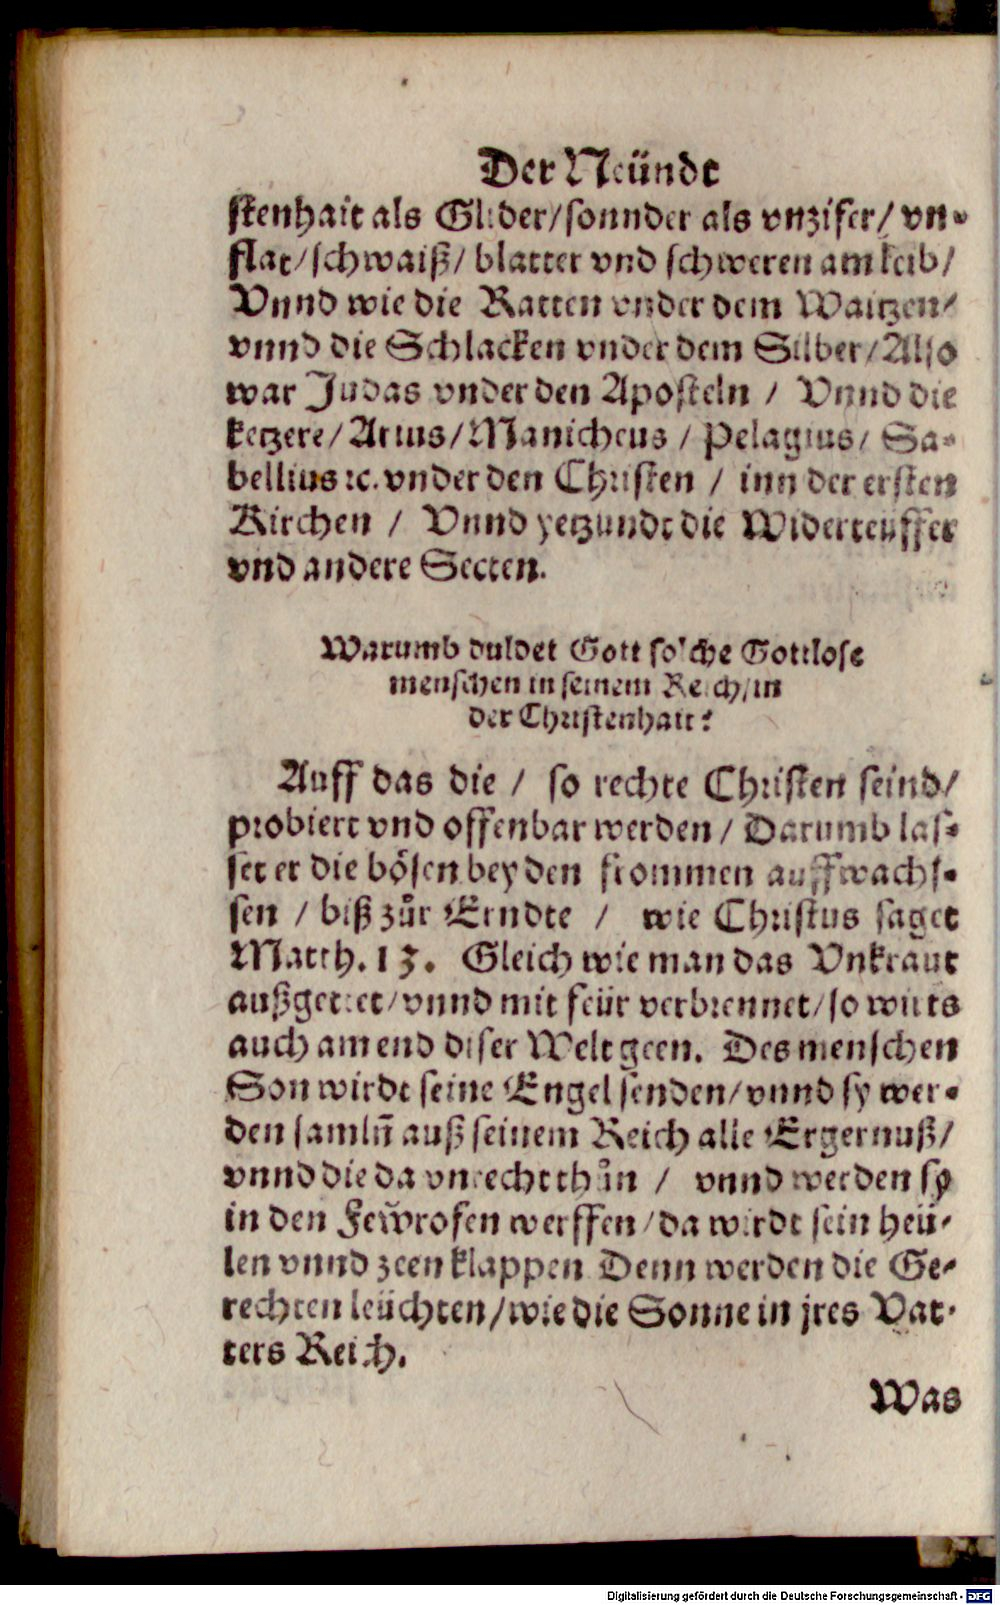 Der Neündt
stenhait als Glider/sonnder als vnzifer/ vn-
flat/schwaiß/ blatter vnd schweren am leib/
Vnnd wie die Ratten vnder dem Waitzen/
vnnd die Schlacken vnder dem Silber/Also
war Judas vnder den Aposteln / Vnnd die
ketzere/Arius/Manicheus / Pelagius/ Sa-
bellius ꝛc. vnder den Christen / inn der ersten
Kirchen / Vnnd yetzundt die Widerteüffer
vnd andere Secten.
Warumb duldet Gott solche Gottlose
menschen in seinem Reich/in
der Christenhait?
Auff das die / so rechte Christen seind/
probiert vnd offenbar werden / Darumb las-
set er die bösen bey den frommen auffwachs-
sen / biß zůr Erndte / wie Christus saget
Matth. 13. Gleich wie man das Vnkraut
außgettet/vnnd mit feür verbrennet/so wirts
auch am end diser Welt geen. Des menschen
Son wirdt seine Engel senden/vnnd sy wer-
den samln̄ auß seinem Reich alle Ergernuß/
vnnd die da vnrecht thůn / vnnd werden sy
in den Fewrofen werffen/da wirdt sein heü-
len vnnd zeen klappen Denn werden die Ge-
rechten leüchten/wie die Sonne in jres Vat-
ters Reich.
Was
Digitalisierung gefördert durch die Deutsche Forschungsgemeinschaft - DFG